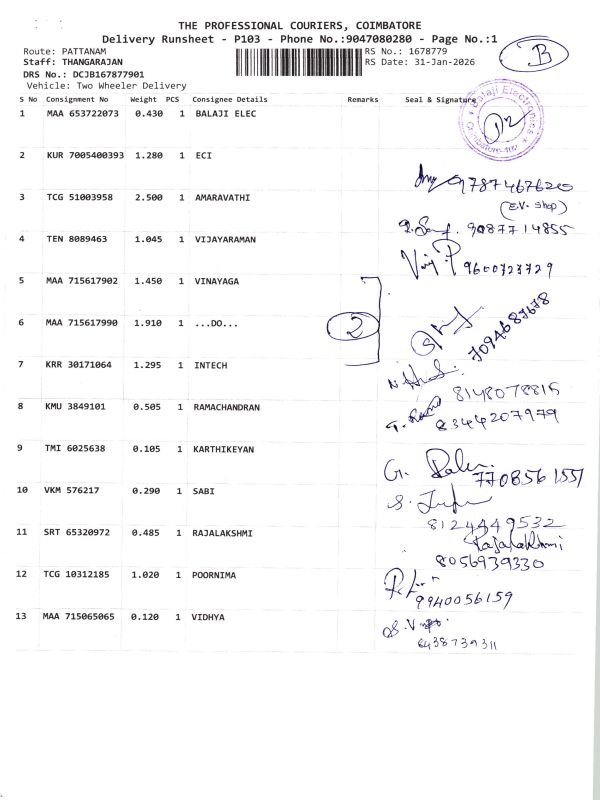 THE PROFESSIONAL COURIERS, COIMBATORE
Delivery Runsheet - P103 - Phone No.:9047080280 - Page No.:1
Route: PATTANAM RS No.: 1678779
Staff: THANGARAJAN RS Date: 31-Jan-2026
DRS No.: DCJB167877901
Vehicle: Two Wheeler Delivery
B
S No Consignment No Weight PCS Consignee Details Remarks Seal & Signature
1 MAA 653722073 0.430 1 BALAJI ELEC
Balaji Electronics
2 KUR 7005400393 1.280 1 ECI
787467620
3 TCG 51003958 2.500 1 AMARAVATHI
(E.V. Shop)
9087714855
4 TEN 8089463 1.045 1 VIJAYARAMAN
9600723729
5 MAA 715617902 1.450 1 VINAYAGA
6 MAA 715617990 1.910 1 ...DO...
2
7094687678
7 KRR 30171064 1.295 1 INTECH
8148078815
8 KMU 3849101 0.505 1 RAMACHANDRAN
8344207979
9 TMI 6025638 0.105 1 KARTHIKEYAN
7708561551
10 VKM 576217 0.290 1 SABI
8124449532
11 SRT 65320972 0.485 1 RAJALAKSHMI
Rajalakhmi
8056939330
12 TCG 10312185 1.020 1 POORNIMA
9940056159
13 MAA 715065065 0.120 1 VIDHYA
8438739311